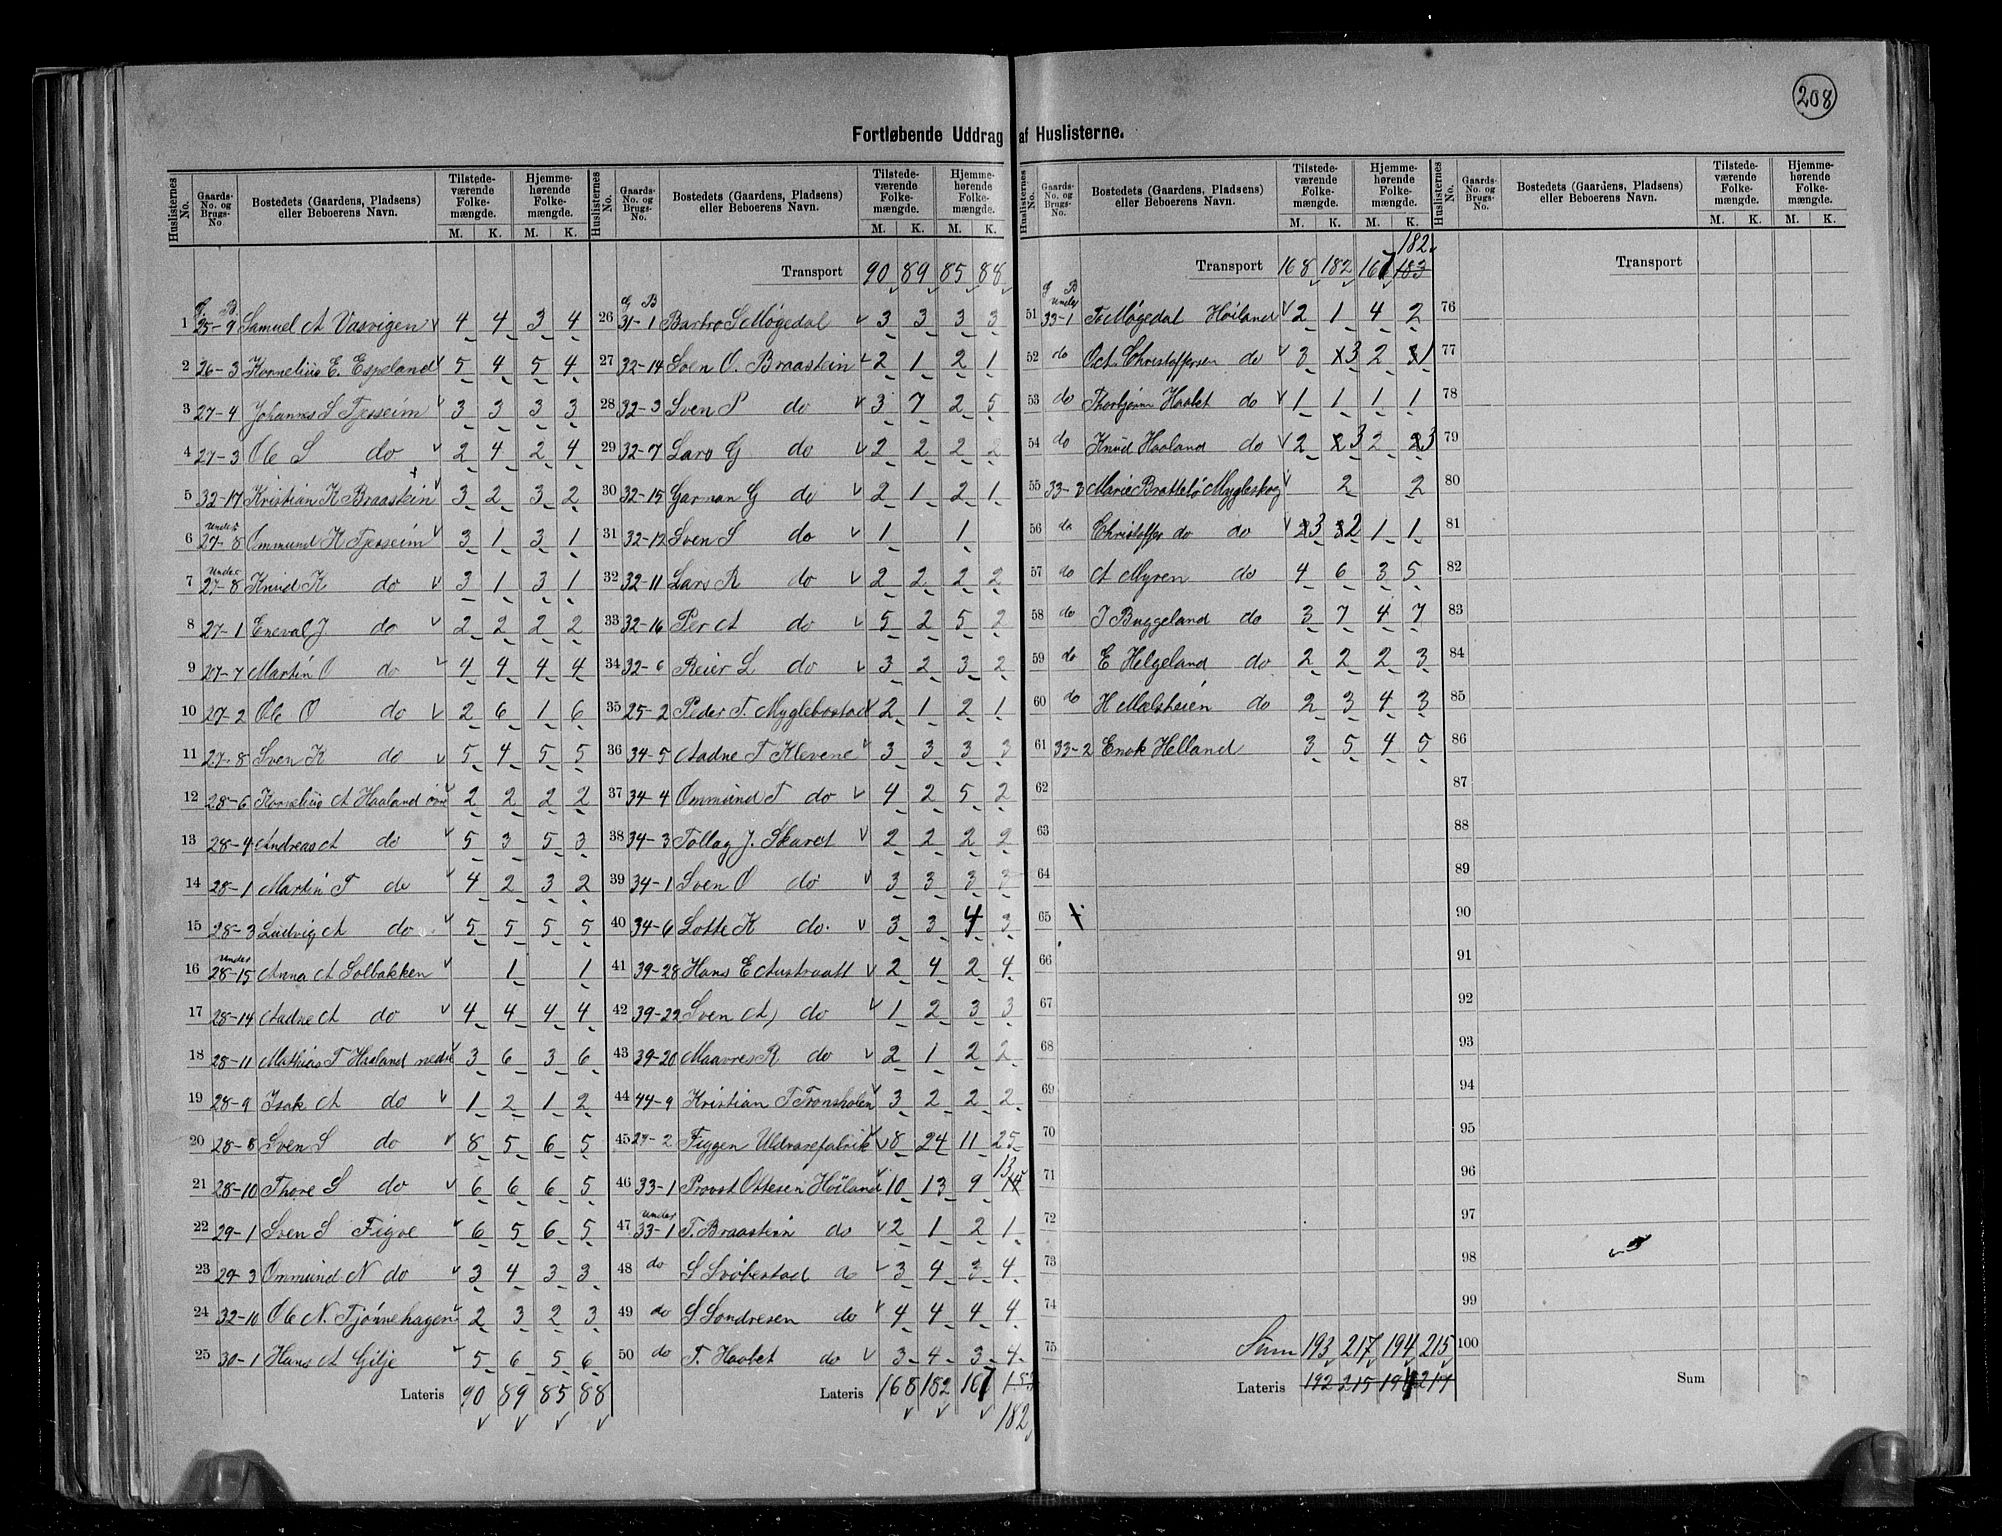 208
Fortløbende Uddrag af Huslisterne.
Huslisternes No. Gaards-No. og Brugs-No. Bostedets (Gaardens, Pladsens) eller Beboerens Navn. Tilstedeværende Folkemængde. M. K. Hjemmehørende Folkemængde. M. K.
G. B.
1 25-9 Samuel A Vasvigen 4 4 3 4
2 26-3 Kornelius E. Espeland 5 4 5 4
3 27-4 Johannes S Tjesseim 3 3 3 3
4 27-3 Ole S do 2 4 2 4
5 32-17 Kristian K Braastein 3 2 3 2
6 under 27-8 Ommund K Tjesseim 3 1 3 1
7 under 27-8 Knud K do 3 1 3 1
8 27-1 Eneval J do 2 2 2 2
9 27-7 Martin O do 4 4 4 4
10 27-2 Ole O do 2 6 1 6
11 27-8 Sven K do 5 4 5 5
12 28-6 Kornelius A Haaland øvre 2 2 2 2
13 28-4 Andreas A do 5 3 5 3
14 28-1 Martin T do 4 2 3 2
15 28-3 Ludvig A do 5 5 5 5
16 under 28-15 Anna A Solbakken 1 1
17 28-14 Aadne A do 4 4 4 4
18 28-11 Mathias T Haaland nedre 3 6 3 6
19 28-9 Isak A do 1 2 1 2
20 28-8 Sven S do 8 5 6 5
21 28-10 Thore S do 6 6 6 5
22 29-1 Sven S Figve 6 5 6 5
23 29-3 Ommund N do 3 4 3 3
24 32-10 Ole N. Tjønnehagen 2 3 2 3
25 30-1 Hans A Gilje 5 6 5 6
Lateris 90 89 85 88
Huslisternes No. Gaards-No. og Brugs-No. Bostedets (Gaardens, Pladsens) eller Beboerens Navn. Tilstedeværende Folkemængde. M. K. Hjemmehørende Folkemængde. M. K.
Transport 90 89 85 88
G B
26 31-1 Barbro S Møgedal 3 3 3 3
27 32-14 Sven O. Braastein 2 1 2 1
28 32-3 Sven P do 3 7 2 5
29 32-7 Lars G do 2 2 2 2
30 32-15 Garman G do 2 1 2 1
31 32-12 Sven S do 1 1
32 32-11 Lars R do 2 2 2 2
33 32-16 Per A do 5 2 5 2
34 32-6 Reier L do 3 2 3 2
35 25-2 Peder T. Myglebostad 2 1 2 1
36 34-5 Aadne T Klevene 3 3 3 3
37 34-4 Ommund T do 4 2 5 2
38 34-3 Tollag J. Skaret 2 2 2 2
39 34-1 Sven O do 3 3 3 3
40 34-6 Lotte K do. 3 3 4 3
41 39-28 Hans E Austraatt 2 4 2 4
42 39-22 Sven A do 1 2 3 3
43 39-20 Maavres R do 2 1 2 2
44 44-9 Kristian T Tronsholen 3 2 2 2
45 27-2 Figgen Uldvarefabrik 8 24 11 25
46 33-1 Provst Ottesen Høiland 10 13 9 14 13
47 under 33-1 T. Braastein do 2 1 2 1
48 do S Svibestad do 3 4 3 4
49 do S Sondresen do 4 4 4 4
50 do T. Haabet do 3 4 3 4
Lateris 168 182 167 183
182
Huslisternes No. Gaards-No. og Brugs-No. Bostedets (Gaardens, Pladsens) eller Beboerens Navn. Tilstedeværende Folkemængde. M. K. Hjemmehørende Folkemængde. M. K.
182
Transport 168 182 167 183
G B
51 under 33-1 T Møgedal Høiland 2 1 4 2
52 do Oct. Christoffersen do 3 3 2 1
53 do Thorbjørn Haabet do 1 1 1 1
54 do Knud Haaland do 2 3 2 3
55 33-3 Marie Bratteli Mygleskog 2 2
56 do Christoffer do do 3 2 1 1
57 do A Myren do 4 6 3 5
58 do J Buggeland do 3 7 4 7
59 do E Helgeland do 2 2 2 3
60 do H Mælsheien do 2 3 4 3
61 33-2 Enok Helland 3 5 4 5
62
63
64
65
66
67
68
69
70
71
72
73
74
75 Sum 193 217 194 215
Lateris 192 215 194 217
Huslisternes No. Gaards-No. og Brugs-No. Bostedets (Gaardens, Pladsens) eller Beboerens Navn. Tilstedeværende Folkemængde. M. K. Hjemmehørende Folkemængde. M. K.
Transport
76
77
78
79
80
81
82
83
84
85
86
87
88
89
90
91
92
93
94
95
96
97
98
99
100
Sum